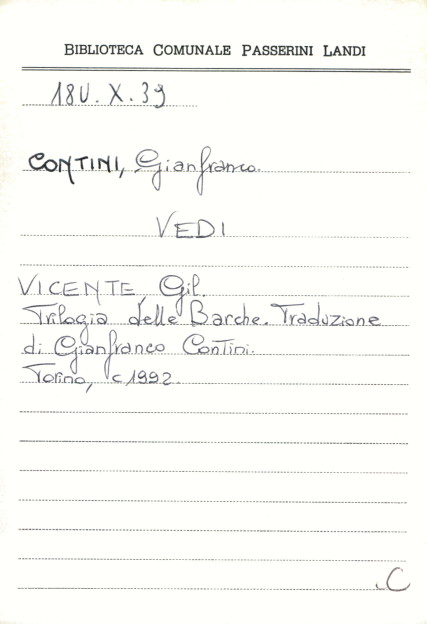 BIBLIOTECA COMUNALE PASSERINI LANDI
18U. X. 39
CONTINI, Gianfranco.
VEDI
VICENTE Gil.
Trilogia delle Barche. Traduzione
di Gianfranco Contini.
Torino, c1992.
.C